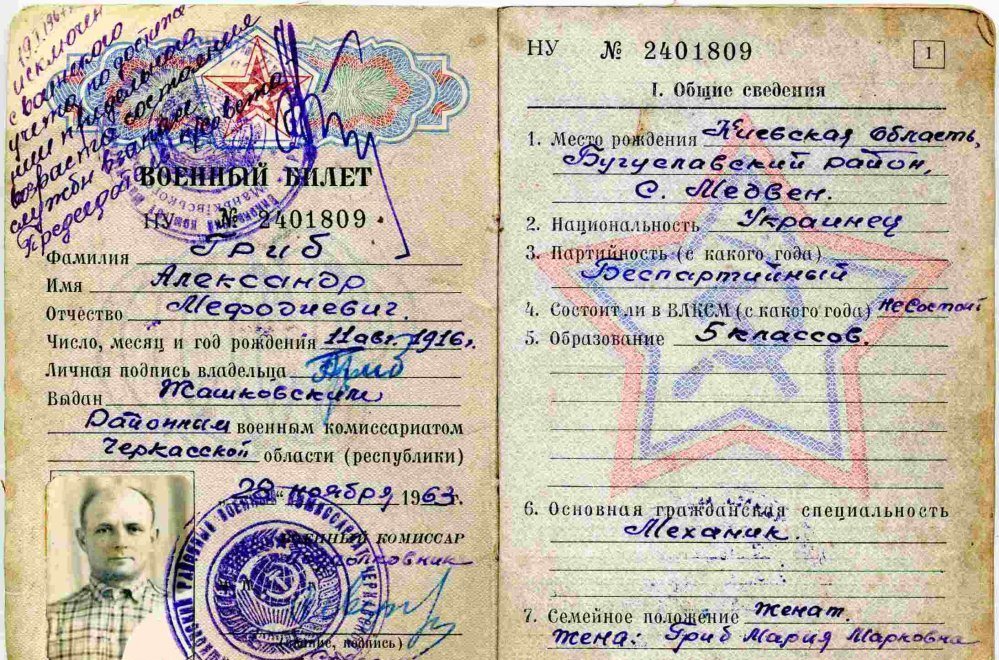 19.I.1967г.
исключен
с воинского
учета по достиже
нии предельного
возраста состояния
службы в запасе
ВОЕННЫЙ БИЛЕТ
НУ № 2401809
Фамилия Гриб
Имя Александр
Отчество Мефодиевич.
Число, месяц и год рождения 11 авг. 1916г.
Личная подпись владельца Гриб
Выдан Жашковским
Районным военным комиссариатом
Черкасской области (республики)
„29" ноября 1963г.
ВОЕННЫЙ КОМИССАР
(звание, подпись)
НУ № 2401809
1
I. Общие сведения
1. Место рождения Киевская область,
Бугуславский район,
С. Медвен.
2. Национальность Украинец
3. Партийность (с какого года)
Беспартийный
4. Состоит ли в ВЛКСМ (с какого года) не состоит
5. Образование 5 классов.
6. Основная гражданская специальность
Механик.
7. Семейное положение женат.
жена: Гриб Мария Марковна